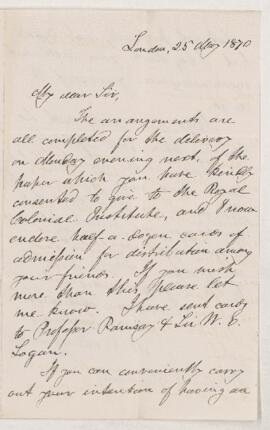 London, 25 May 1870
My dear Sir,
The arrangements are
all completed for the delivery
on Monday evening next, of the
paper which you have kindly
consented to give to the Royal
Colonial Institute, and I now
enclose half-a-dozen cards of
admission for distribution among
your friends. If you wish
more than this, please let
me know. I have sent cards
to Professor Ramsay & Sir W. E.
Logan.
If you can conveniently carry
out your intention of having an